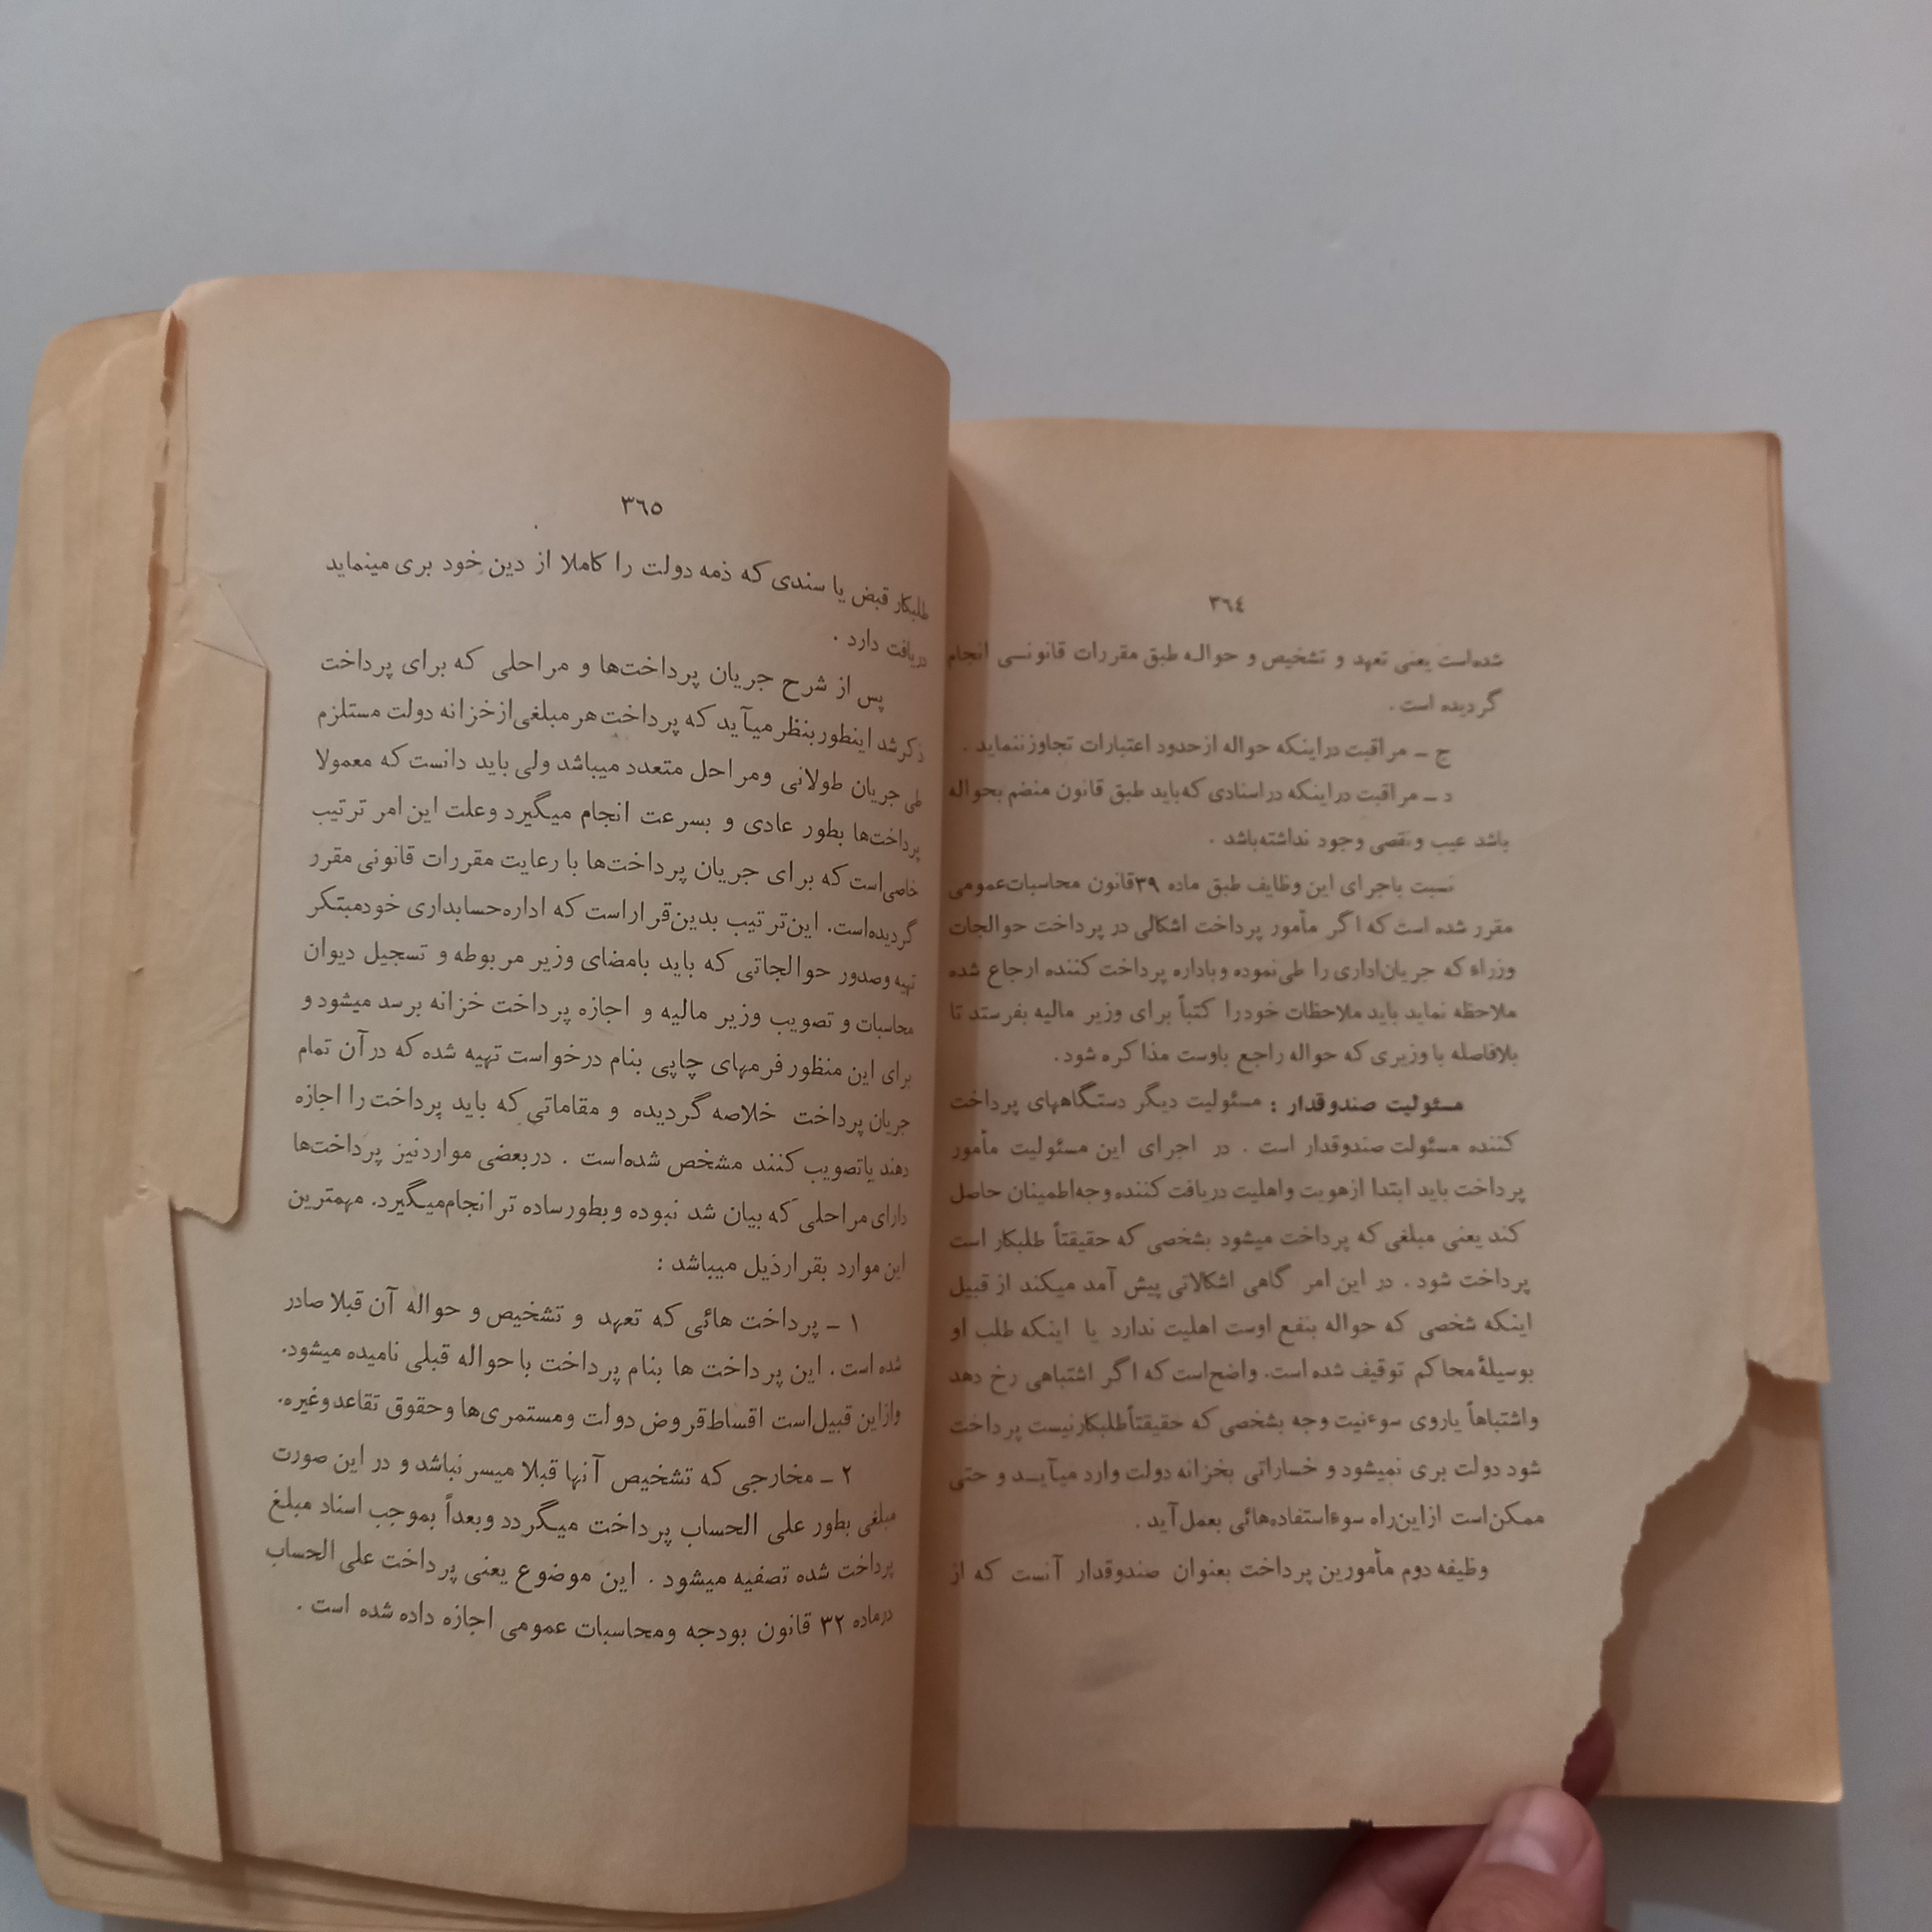 ٣٦٤
شده‌است یعنی تعهد و تشخیص و حواله طبق مقررات قانونی انجام
گردیده است .
ج ـ مراقبت دراینکه حواله ازحدود اعتبارات تجاوز ننماید .
د ـ مراقبت دراینکه دراسنادی که‌باید طبق قانون منضم بحواله
باشد عیب و نقصی وجود نداشته‌باشد .
نسبت باجرای این وظایف طبق ماده ۳۹ قانون محاسبات‌عمومی
مقرر شده است که اگر مأمور پرداخت اشکالی در پرداخت حوالجات
وزراء که جریان‌اداری را طی‌نموده و باداره پرداخت کننده ارجاع شده
ملاحظه نماید باید ملاحظات خودرا کتباً برای وزیر مالیه بفرستد تا
بلافاصله با وزیری که حواله راجع باوست مذاکره شود.
مسئولیت صندوقدار : مسئولیت دیگر دستگاههای پرداخت
کننده مسئولت صندوقدار است . در اجرای این مسئولیت مأمور
پرداخت باید ابتدا ازهویت واهلیت دریافت کننده وجه‌اطمینان حاصل
کند یعنی مبلغی که پرداخت میشود بشخصی که حقیقتاً طلبکار است
پرداخت شود . در این امر گاهی اشکالاتی پیش آمد میکند از قبیل
اینکه شخصی که حواله بنفع اوست اهلیت ندارد یا اینکه طلب او
بوسیلهٔ محاکم توقیف شده است. واضح‌است که اگر اشتباهی رخ دهد
واشتباهاً یاروی سوءنیت وجه بشخصی که حقیقتاً طلبکارنیست پرداخت
شود دولت بری نمیشود و خساراتی بخزانه دولت وارد میآیـد و حتی
ممکن‌است ازاین‌راه سوءاستفاده‌هائی بعمل آید .
وظیفه دوم مأمورین پرداخت بعنوان صندوقدار آنست که از
٣٦٥
طلبکار قبض یا سندی که ذمه دولت را کاملا از دین خود بری مینماید
دریافت دارد .
پس از شرح جریان پرداخت‌ها و مراحلی که برای پرداخت
ذکر شد اینطور بنظر میآید که پرداخت هر مبلغی ازخزانه دولت مستلزم
طی جریان طولانی ومراحل متعدد میباشد ولی باید دانست که معمولا
پرداخت‌ها بطور عادی و بسرعت انجام میگیرد وعلت این امر ترتیب
خاصی‌است که برای جریان پرداخت‌ها با رعایت مقررات قانونی مقرر
گردیده‌است. این‌ترتیب بدین‌قراراست که اداره‌حسابداری خودمبتکر
تهیه وصدور حوالجاتی که باید بامضای وزیر مربوطه و تسجیل دیوان
محاسبات و تصویب وزیر مالیه و اجازه پرداخت خزانه برسد میشود و
برای این منظور فرمهای چاپی بنام درخواست تهیه شده که درآن تمام
جریان پرداخت خلاصه گردیده و مقاماتی که باید پرداخت را اجازه
دهند یاتصویب کنند مشخص شده‌است . دربعضی مواردنیز پرداخت‌ها
دارای مراحلی که بیان شد نبوده وبطورساده تر انجام‌میگیرد. مهمترین
این موارد بقرارذیل میباشد :
١ ـ پرداخت هائی که تعهد و تشخیص و حواله آن قبلا صادر
شده است . این پرداخت ها بنام پرداخت با حواله قبلی نامیده میشود.
وازاین قبیل‌است اقساط‌قروض دولت ومستمری‌ها وحقوق تقاعد وغیره.
٢ ـ مخارجی که تشخیص آنها قبلا میسر نباشد و در این صورت
مبلغی بطور علی الحساب پرداخت میگردد وبعداً بموجب اسناد مبلغ
پرداخت شده تصفیه میشود . این موضوع یعنی پرداخت علی الحساب
درماده ۳۲ قانون بودجه ومحاسبات عمومی اجازه داده شده است .